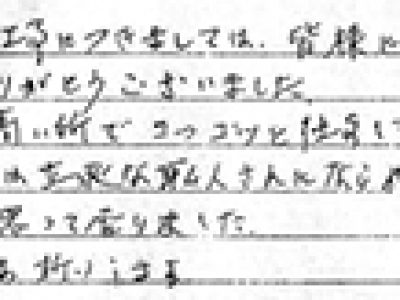 工事につきましては、皆様に
りがとうございました。
高い所でコツコツと仕事して
は立派な職人さんになられ
思って居りました。
お祈りします